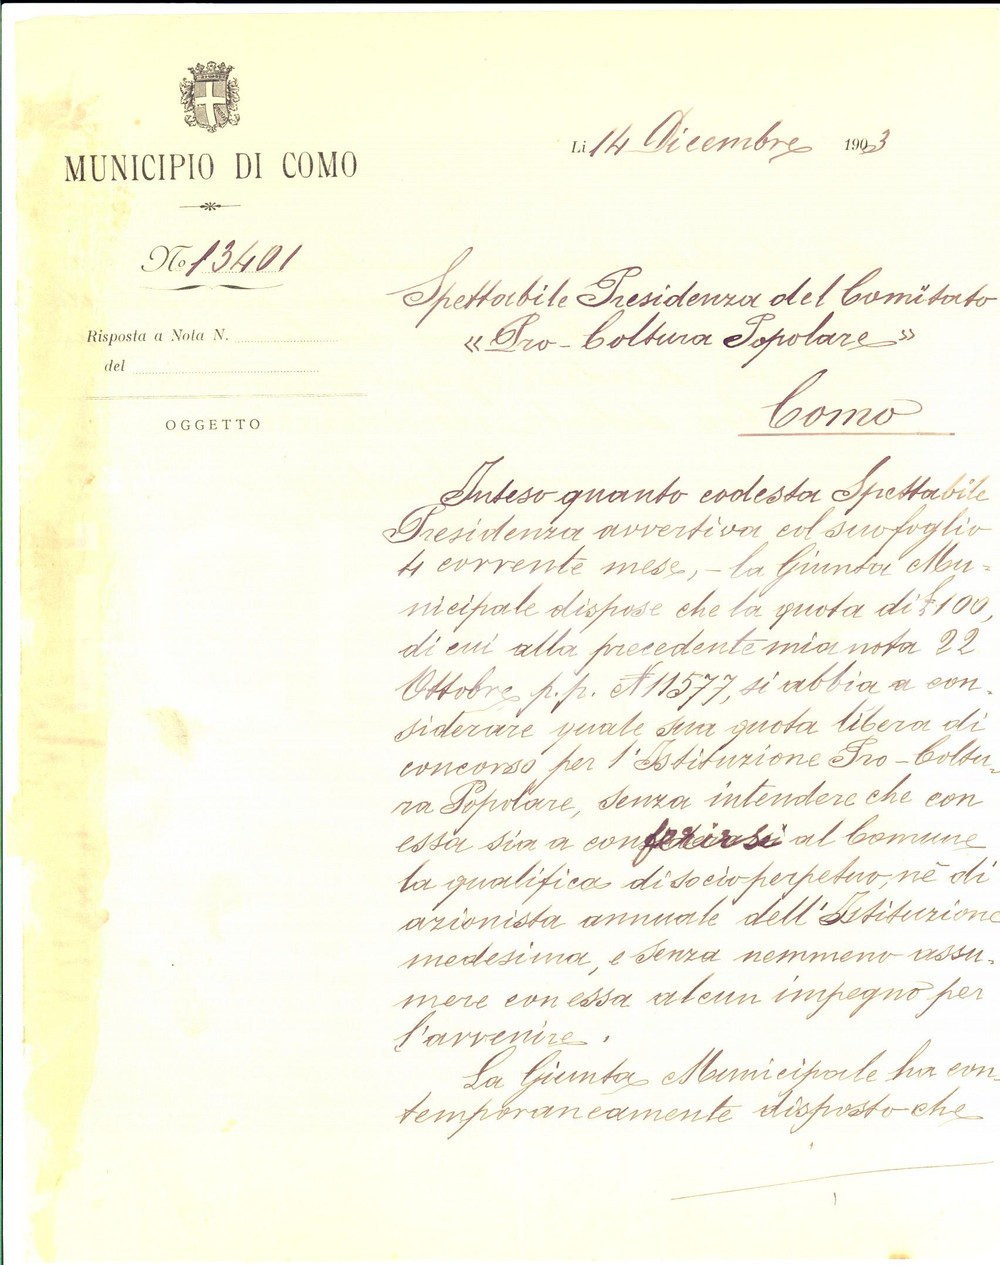 MUNICIPIO DI COMO
Li 14 Dicembre 1903
No 13401
Risposta a Nota N.
del
OGGETTO
Spettabile Presidenza del Comitato
« Pro-Coltura Popolare »
Como
Inteso quanto codesta Spettabile
Presidenza avvertiva col suo foglio
4 corrente mese, - la Giunta Mu-
nicipale dispose che la quota di £ 100,
di cui alla precedente mia nota 22
Ottobre p.p. N 11577, si abbia a con-
siderare quale sua quota libera di
concorso per l'Istituzione Pro-Coltu-
ra Popolare, senza intendere che con
essa sia a conferirsi al Comune
la qualifica di socio perpetuo, nè di
azionista annuale dell'Istituzione
medesima, e senza nemmeno assu-
mere con essa alcun impegno per
l'avvenire.
La Giunta Municipale ha con-
temporaneamente disposto che